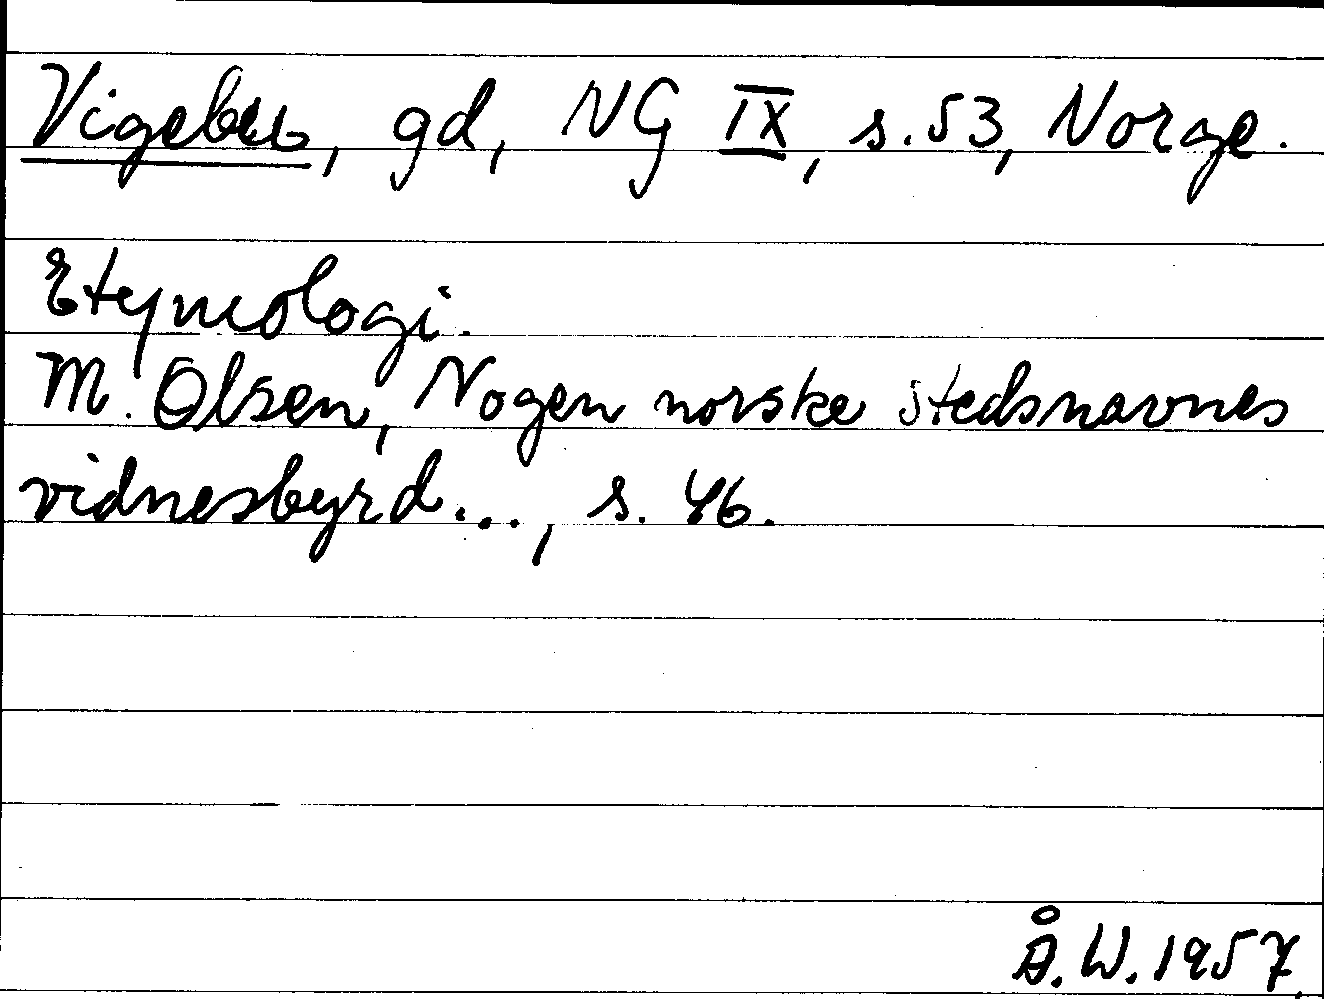 Vigebu, gd, NG IX, s. 53, Norge.
Etymologi.
M. Olsen, Nogen norske stedsnavnes
vidnesbyrd..., s. 46.
Å.W. 1957.